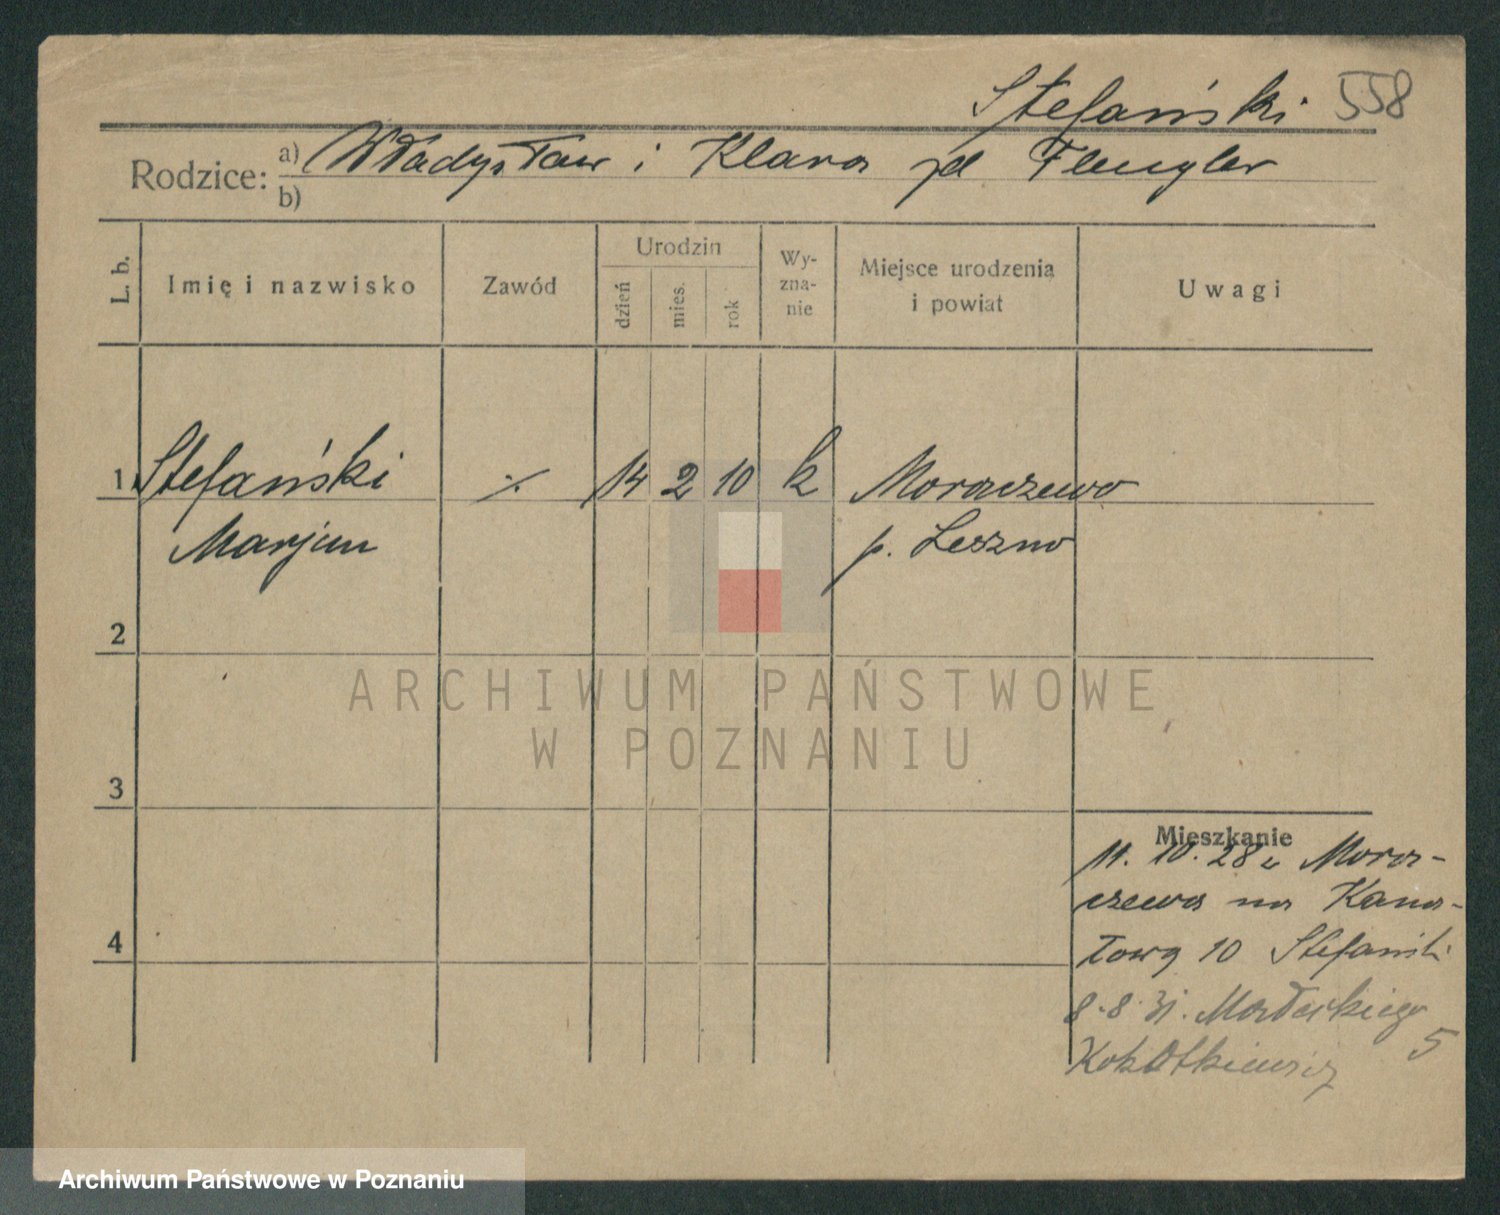 Stefański 558
Rodzice: a) Władysław i Klara zd Flengler
b)
L. b. Imię i nazwisko Zawód Urodzin dzień mies. rok Wy-zna-nie Miejsce urodzenia i powiat Uwagi
1 Stefański ./. 14 2 10 k Moraczewo
Marjan p. Leszno
2
3
4
Mieszkanie
11. 10. 28 z Mora-
czewa na Kana-
łową 10 Stefański
8.8.31. Małeckiego 5
ARCHIWUM PAŃSTWOWE
W POZNANIU
Archiwum Państwowe w Poznaniu